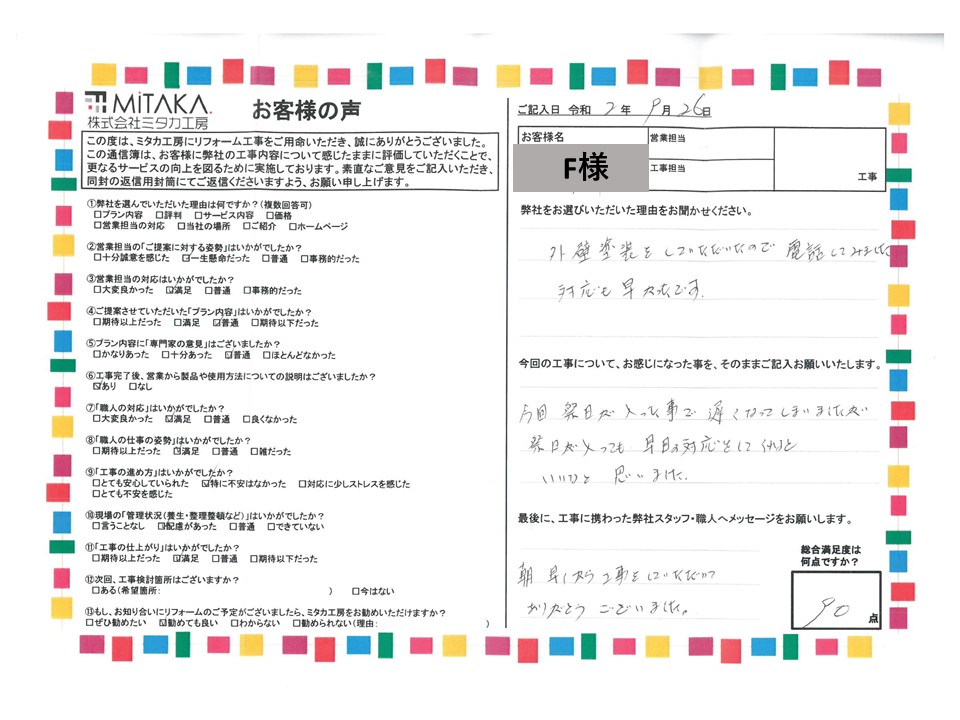 MiTAKA
株式会社ミタカ工房
お客様の声
この度は、ミタカ工房にリフォーム工事をご用命いただき、誠にありがとうございました。
この通信簿は、お客様に弊社の工事内容について感じたままに評価していただくことで、
更なるサービスの向上を図るために実施しております。素直なご意見をご記入いただき、
同封の返信用封筒にてご返信くださいますよう、お願い申し上げます。
①弊社を選んでいただいた理由は何ですか？（複数回答可）
□プラン内容 □評判 □サービス内容 □価格
□営業担当の対応 □当社の場所 □ご紹介 □ホームページ
②営業担当の「ご提案に対する姿勢」はいかがでしたか？
□十分誠意を感じた ☑一生懸命だった □普通 □事務的だった
③営業担当の対応はいかがでしたか？
□大変良かった ☑満足 □普通 □事務的だった
④ご提案させていただいた「プラン内容」はいかがでしたか？
□期待以上だった □満足 ☑普通 □期待以下だった
⑤プラン内容に「専門家の意見」はございましたか？
□かなりあった □十分あった ☑普通 □ほとんどなかった
⑥工事完了後、営業から製品や使用方法についての説明はございましたか？
☑あり □なし
⑦「職人の対応」はいかがでしたか？
□大変良かった ☑満足 □普通 □良くなかった
⑧「職人の仕事の姿勢」はいかがでしたか？
□期待以上だった ☑満足 □普通 □雑だった
⑨「工事の進め方」はいかがでしたか？
□とても安心していられた ☑特に不安はなかった □対応に少しストレスを感じた
□とても不安を感じた
⑩現場の「管理状況（養生・整理整頓など）」はいかがでしたか？
□言うことなし ☑配慮があった □普通 □できていない
⑪「工事の仕上がり」はいかがでしたか？
□期待以上だった ☑満足 □普通 □期待以下だった
⑫次回、工事検討箇所はございますか？
□ある（希望箇所： ） □今はない
⑬もし、お知り合いにリフォームのご予定がございましたら、ミタカ工房をお勧めいただけますか？
□ぜひ勧めたい ☑勧めても良い □わからない □勧められない（理由： ）
ご記入日 令和 2 年 9 月 26 日
お客様名
F様
営業担当
工事担当
工事
弊社をお選びいただいた理由をお聞かせください。
外壁塗装をしていただいたので 電話してみました
対応も早かったです.
今回の工事について、お感じになった事を、そのままご記入お願いいたします。
今回 祭日が入った事で 遅くなってしまいましたが
祭日が入っても 早目の対応をしてくれると
いいなと 思いました.
最後に、工事に携わった弊社スタッフ・職人へメッセージをお願いします。
朝 早くから工事をしていただいて
ありがとう ございました。
総合満足度は
何点ですか？
90 点